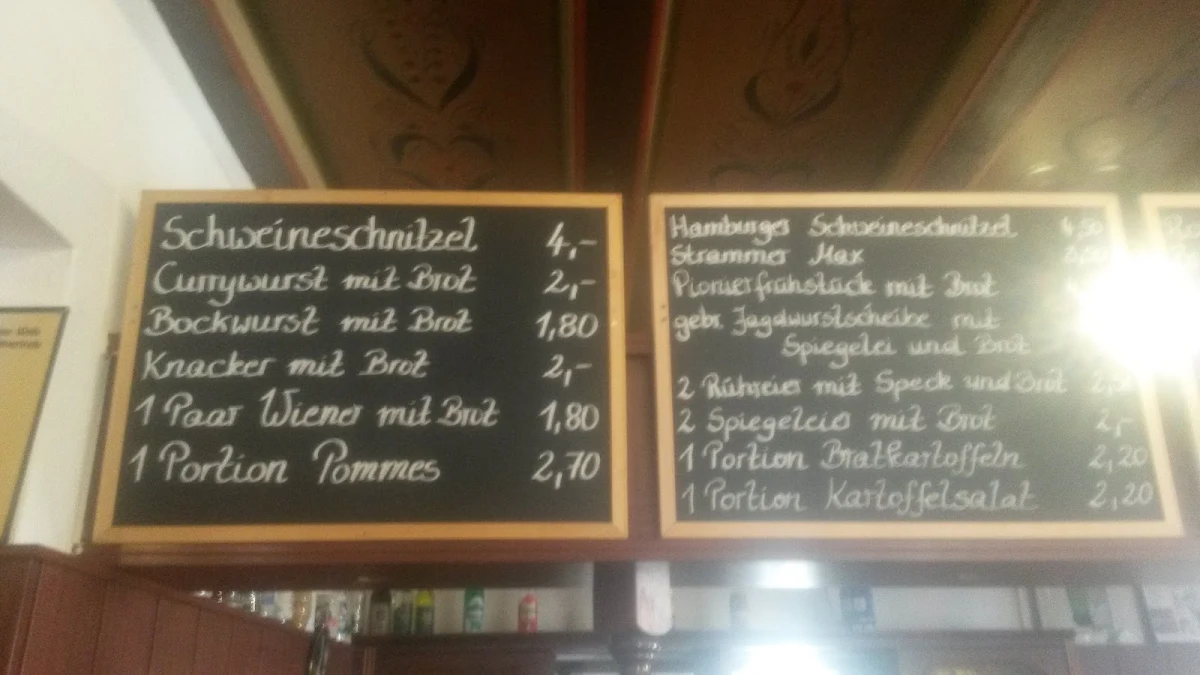 Schweineschnitzel 4,-
Currywurst mit Brot 2,-
Bockwurst mit Brot 1,80
Knacker mit Brot 2,-
1 Paar Wiener mit Brot 1,80
1 Portion Pommes 2,70
Hamburger Schweineschnitzel 4,50
Strammer Max
Pionierfrühstück mit Brot
gebr. Jagdwurstscheibe mit
Spiegelei und Brot
2 Rühreier mit Speck und Brot
2 Spiegeleier mit Brot 2,-
1 Portion Bratkartoffeln 2,20
1 Portion Kartoffelsalat 2,20